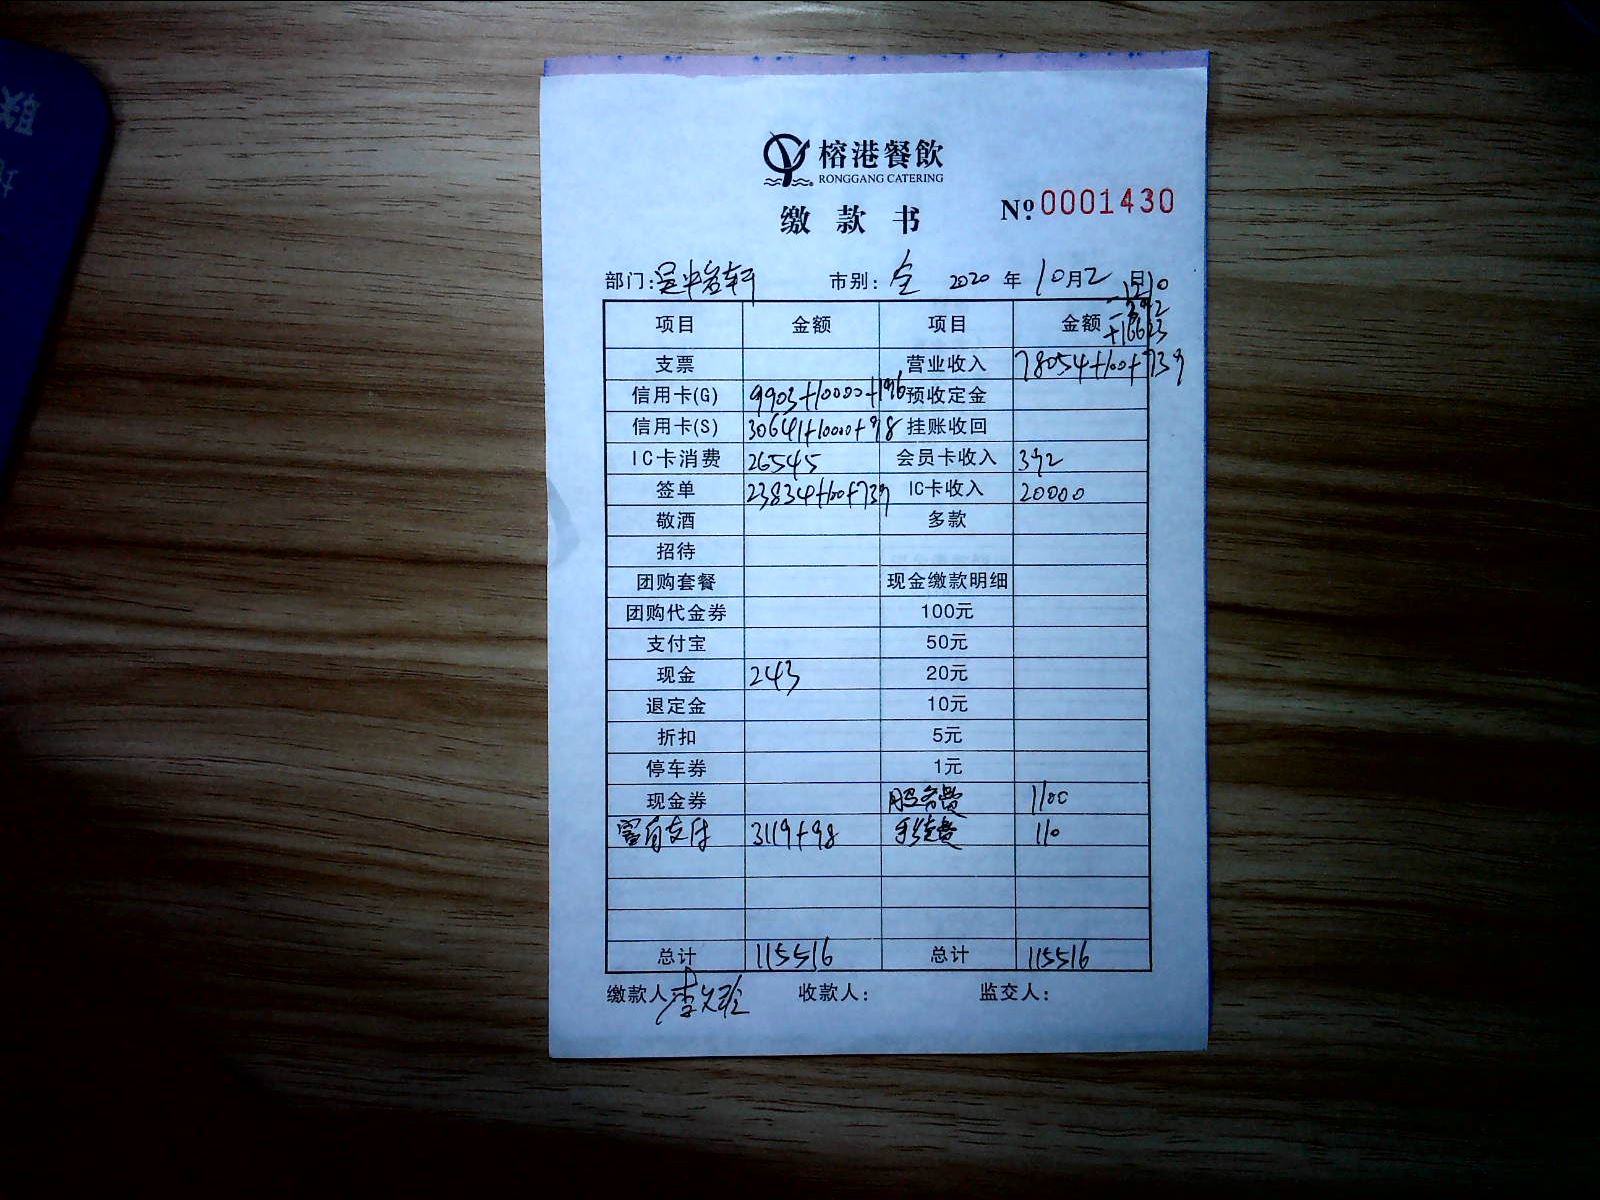 榕港餐飲
RONGGANG CATERING
缴款书
№ 0001430
部门: 市别: 全 2020 年 10月2日
项目 金额 项目 金额
+16623
支票 营业收入 78054+100+739
信用卡(G) 9903+10000+196 预收定金
信用卡(S) 30641+10000+98 挂账收回
IC卡消费 26545 会员卡收入 392
签单 23834+100+739 IC卡收入 20000
敬酒 多款
招待
团购套餐 现金缴款明细
团购代金券 100元
支付宝 50元
现金 243 20元
退定金 10元
折扣 5元
停车券 1元
现金券 服务费 1100
支付 3119+98 手续费 110
总计 115516 总计 115516
缴款人: 收款人: 监交人: